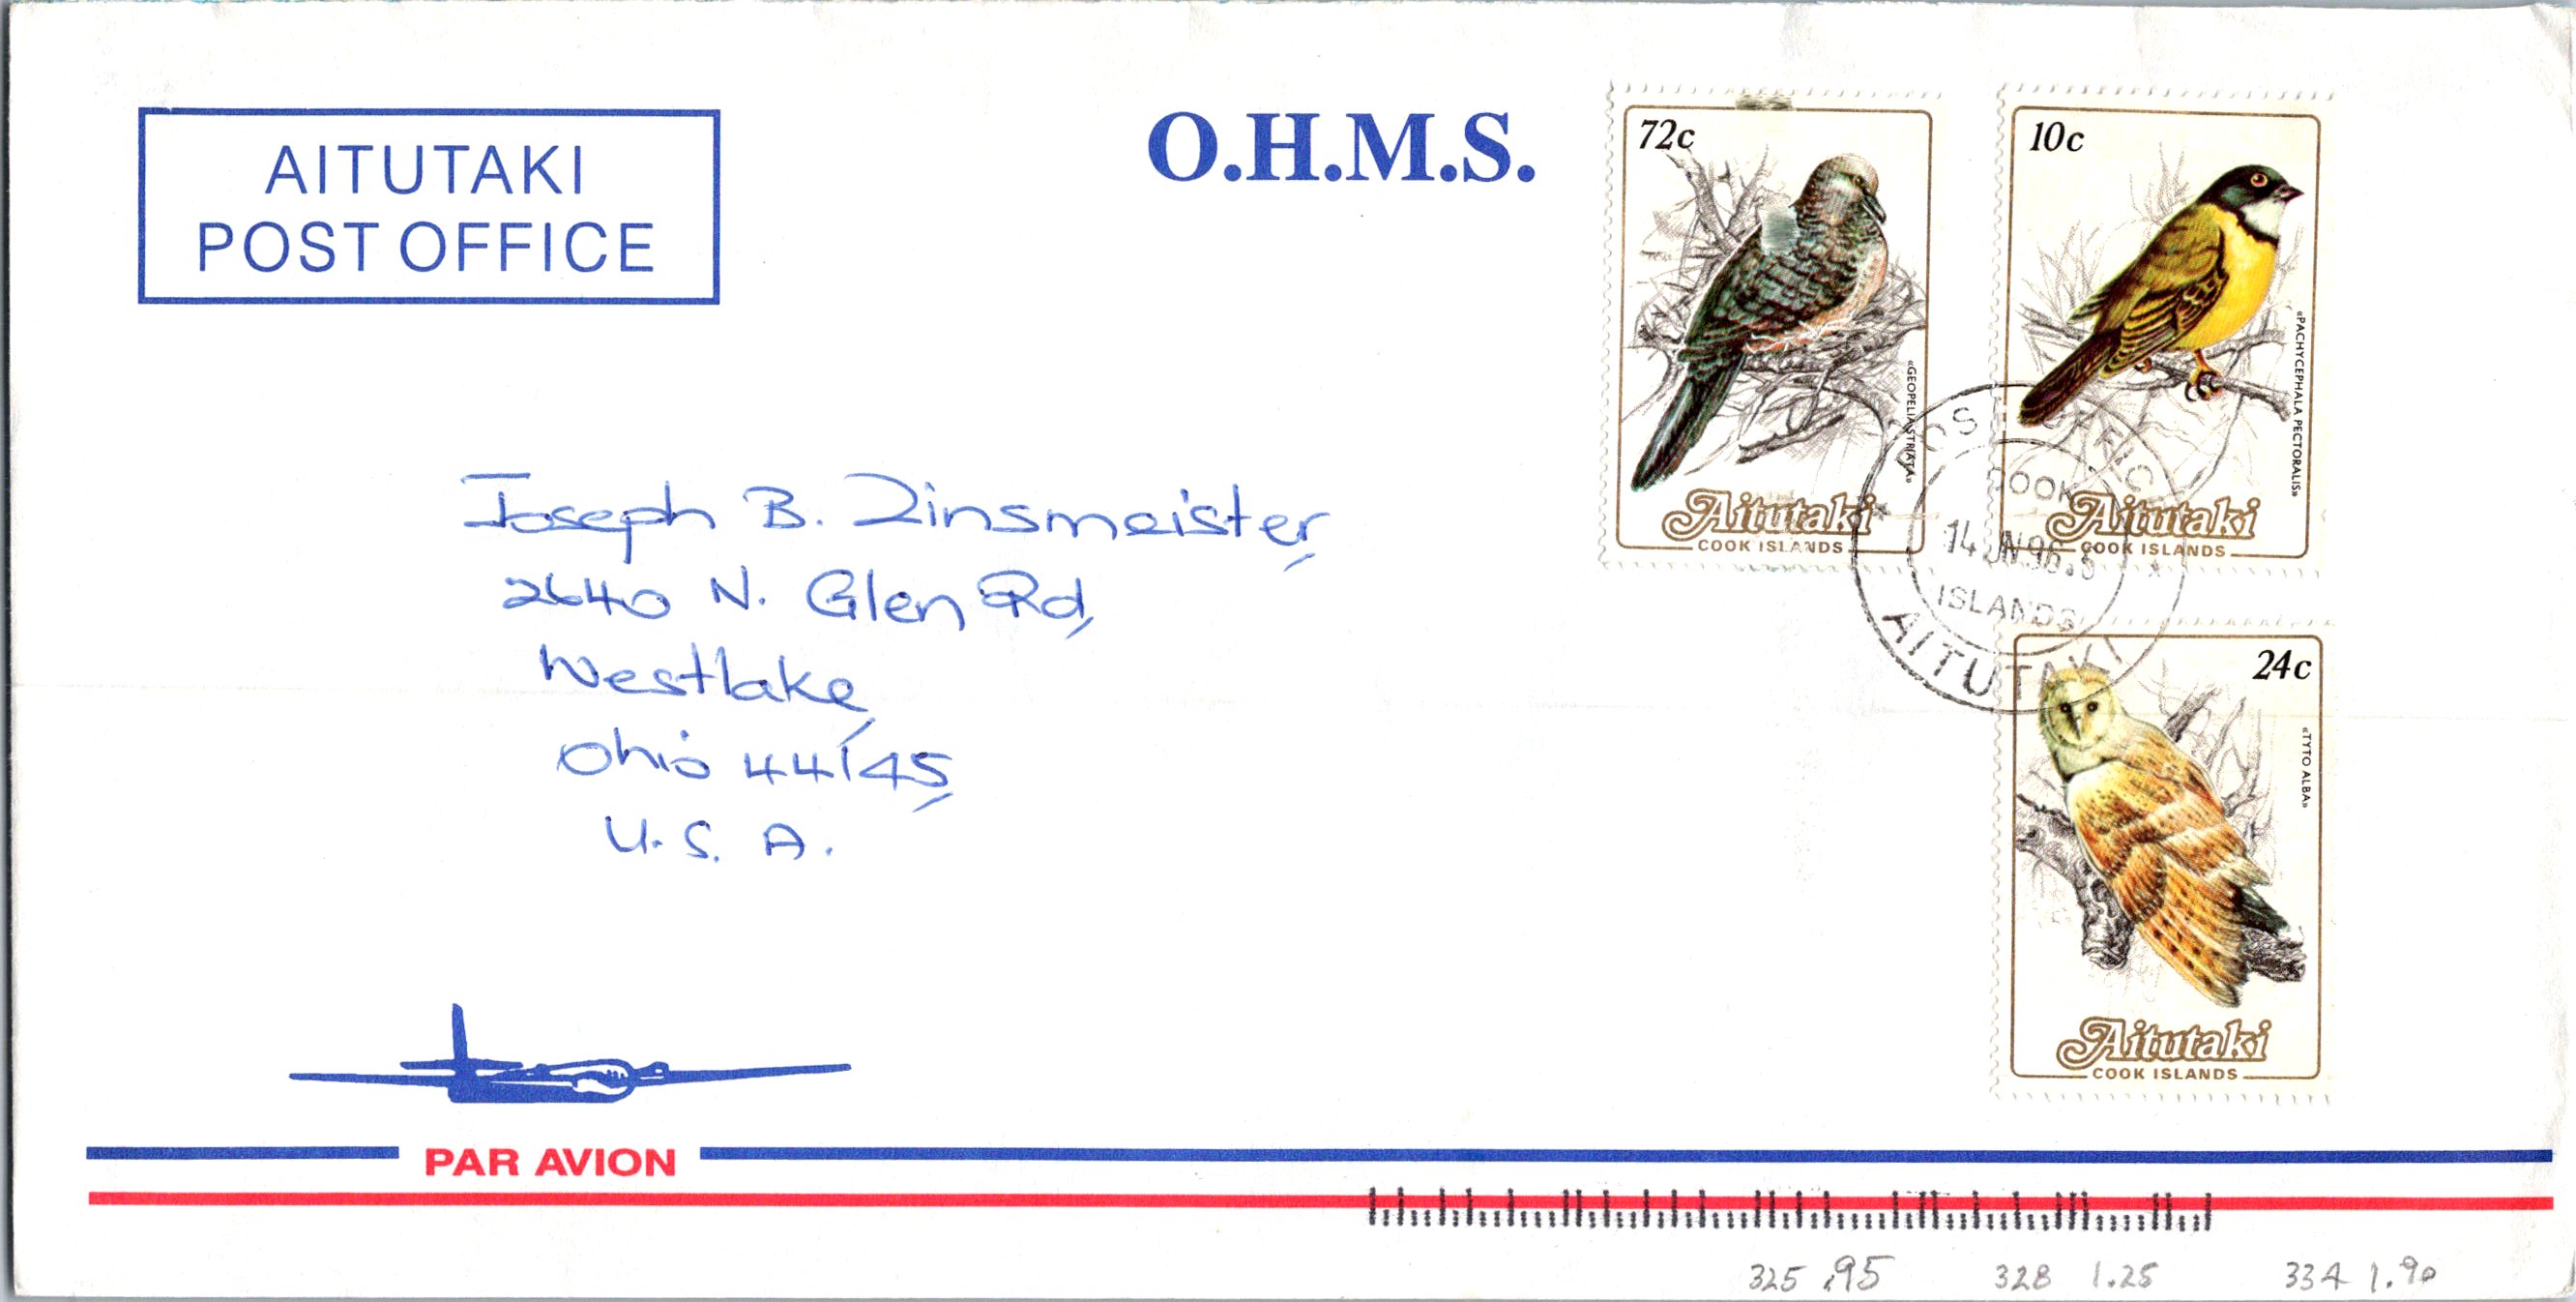 AITUTAKI
POST OFFICE
O.H.M.S.
72c
«GEOPELIA STRIATA»
Aitutaki
COOK ISLANDS
10c
«PACHYCEPHALA PECTORALIS»
Aitutaki
COOK ISLANDS
POST OFFIC
COOK
14 JN 96
ISLANDS
AITUTAKI
24c
«TYTO ALBA»
Aitutaki
COOK ISLANDS
Joseph B. Zinsmeister,
2640 N. Glen Rd,
Westlake,
Ohio 44145,
U.S. A.
PAR AVION
325 .95 328 1.25 334 1.90